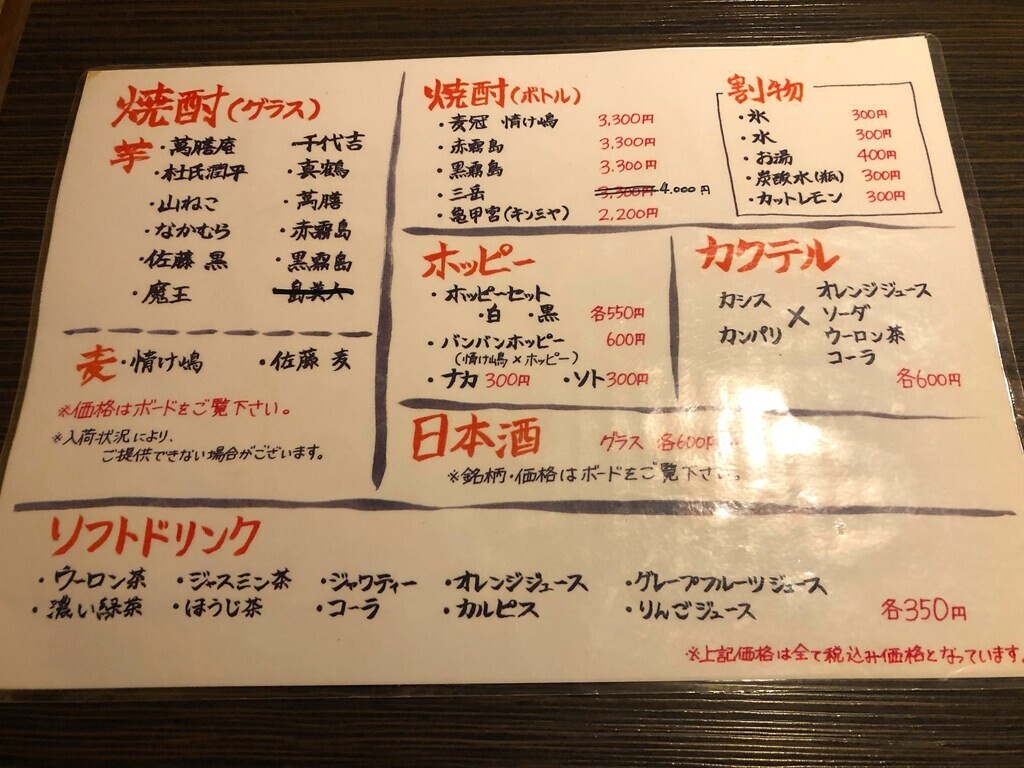 焼酎(グラス)
芋
・萬膳庵 千代吉
・杜氏潤平 ・真鶴
・山ねこ ・萬膳
・なかむら ・赤霧島
・佐藤 黒 ・黒霧島
・魔王 島美人
麦 ・情け嶋 ・佐藤 麦
※価格はボードをご覧下さい。
※入荷状況により、
ご提供できない場合がございます。
焼酎(ボトル)
・麦冠 情け嶋 3,300円
・赤霧島 3,300円
・黒霧島 3,300円
・三岳 3,300円 4,000円
・亀甲宮(キンミヤ) 2,200円
割物
・氷 300円
・水 300円
・お湯 400円
・炭酸水(瓶) 300円
・カットレモン 300円
ホッピー
・ホッピーセット
・白 ・黒 各550円
・バンバンホッピー 600円
(情け嶋×ホッピー)
・ナカ 300円 ・ソト 300円
カクテル
カシス
カンパリ
×
オレンジジュース
ソーダ
ウーロン茶
コーラ
各600円
日本酒 グラス 各600円
※銘柄・価格はボードをご覧下さい。
ソフトドリンク
・ウーロン茶 ・ジャスミン茶 ・ジャワティー ・オレンジジュース ・グレープフルーツジュース
・濃い緑茶 ・ほうじ茶 ・コーラ ・カルピス ・りんごジュース 各350円
※上記価格は全て税込み価格となっています。